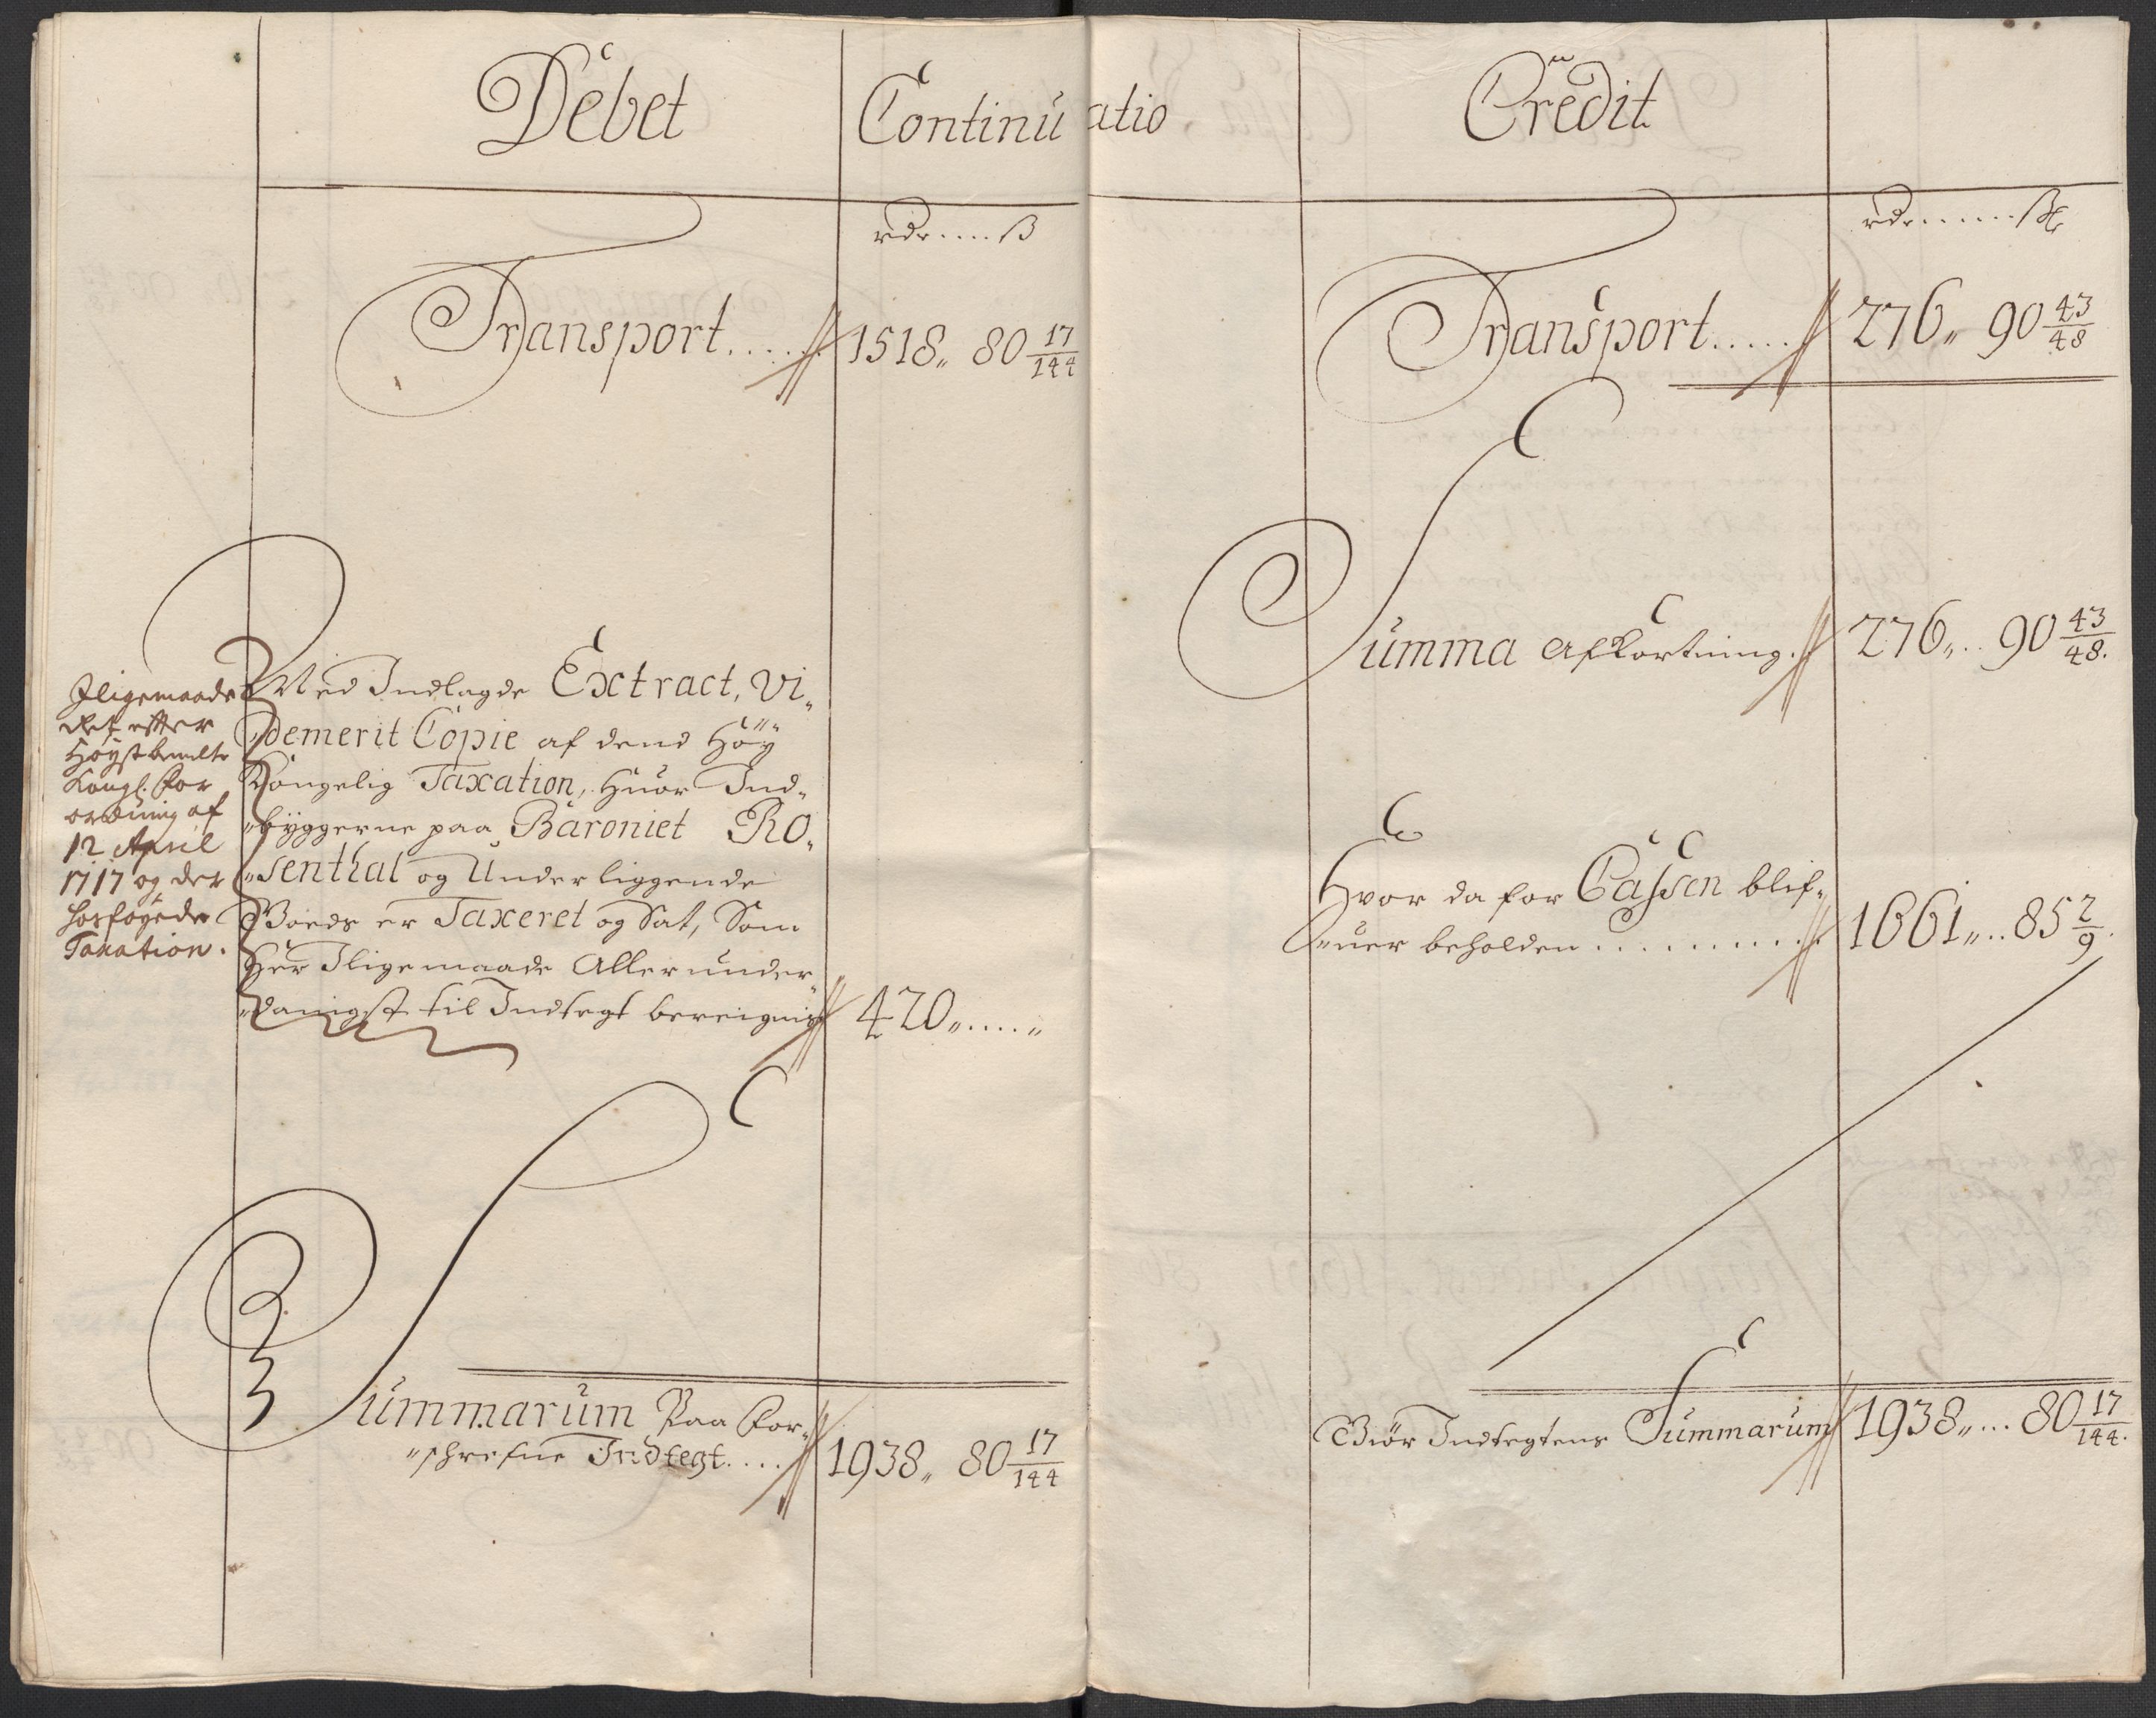 Debet
Continu
rdr....ß
Transport..... 1518„ 80 17/144
Iligemaade
det effter
Höystbemelte
Kongl: For
ordning af
12 April
1717 og der
hosföyede
Taxation.
Ved Indlagde Extract, Vi„
„demerit Copie af dend Höÿ
Kongelig Taxation, Huor Ind„
„byggerne paa Baroniet Ro„
„senthal og Underliggende
Goeds er Taxeret og Sat, Som
Her Iligemaade Allerunder„
„danigst til Indtegt bereignis 420„.....„
Summarum Paa For„
„schrefne Indtegt.... 1938„ 80 17/144
atio
Credit
rdr......ß
Transport..... 276„ 90 43/48
Summa Afkortning.. 276„.. 90 43/48.
Hvor da for Cassen blif„
„uer beholden.......... 1661„.. 85 2/9.
Giör Indtegtens Summarum 1938„... 80 17/144.